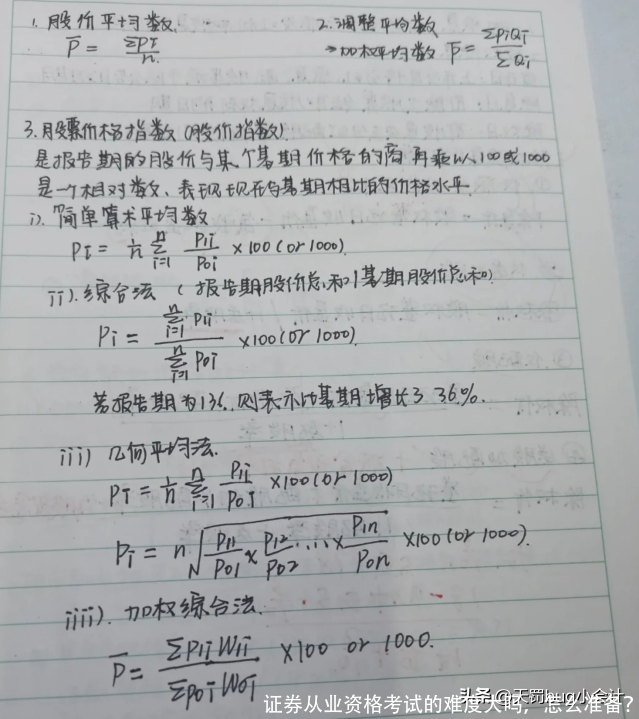 1. 股价平均数.
P̄ = ΣPi / n.
2. 调整平均数
→加权平均数 P̄ = ΣPiQi / ΣQi
3. 股票价格指数 (股价指数)
是报告期的股价与某个基期价格的商再乘以100或1000
是一个相对数、表现现在与基期相比的价格水平.
i). 简单算术平均数
Pi = 1/n Σ(i=1→n) P1i / P0i ×100 (or 1000).
ii). 综合法 ( 报告期股价总和 / 基期股价总和)
Pi = Σ(i=1→n) P1i / Σ(i=1→n) P0i ×100 (or 1000).
若报告期为136, 则表示比基期增长3 36%.
iii) 几何平均法.
Pi = 1/n Σ(i=1→n) P1i / P0i ×100 (or 1000)
Pi = n√(P11/P01 × P12/P02 ... × P1n/P0n) ×100 (or 1000).
iiii). 加权综合法.
P̄ = ΣP1iW1i / ΣP0iW0i ×100 or 1000.
头条 @天罚bug小会计
证券从业资格考试的难度大吗，怎么准备？